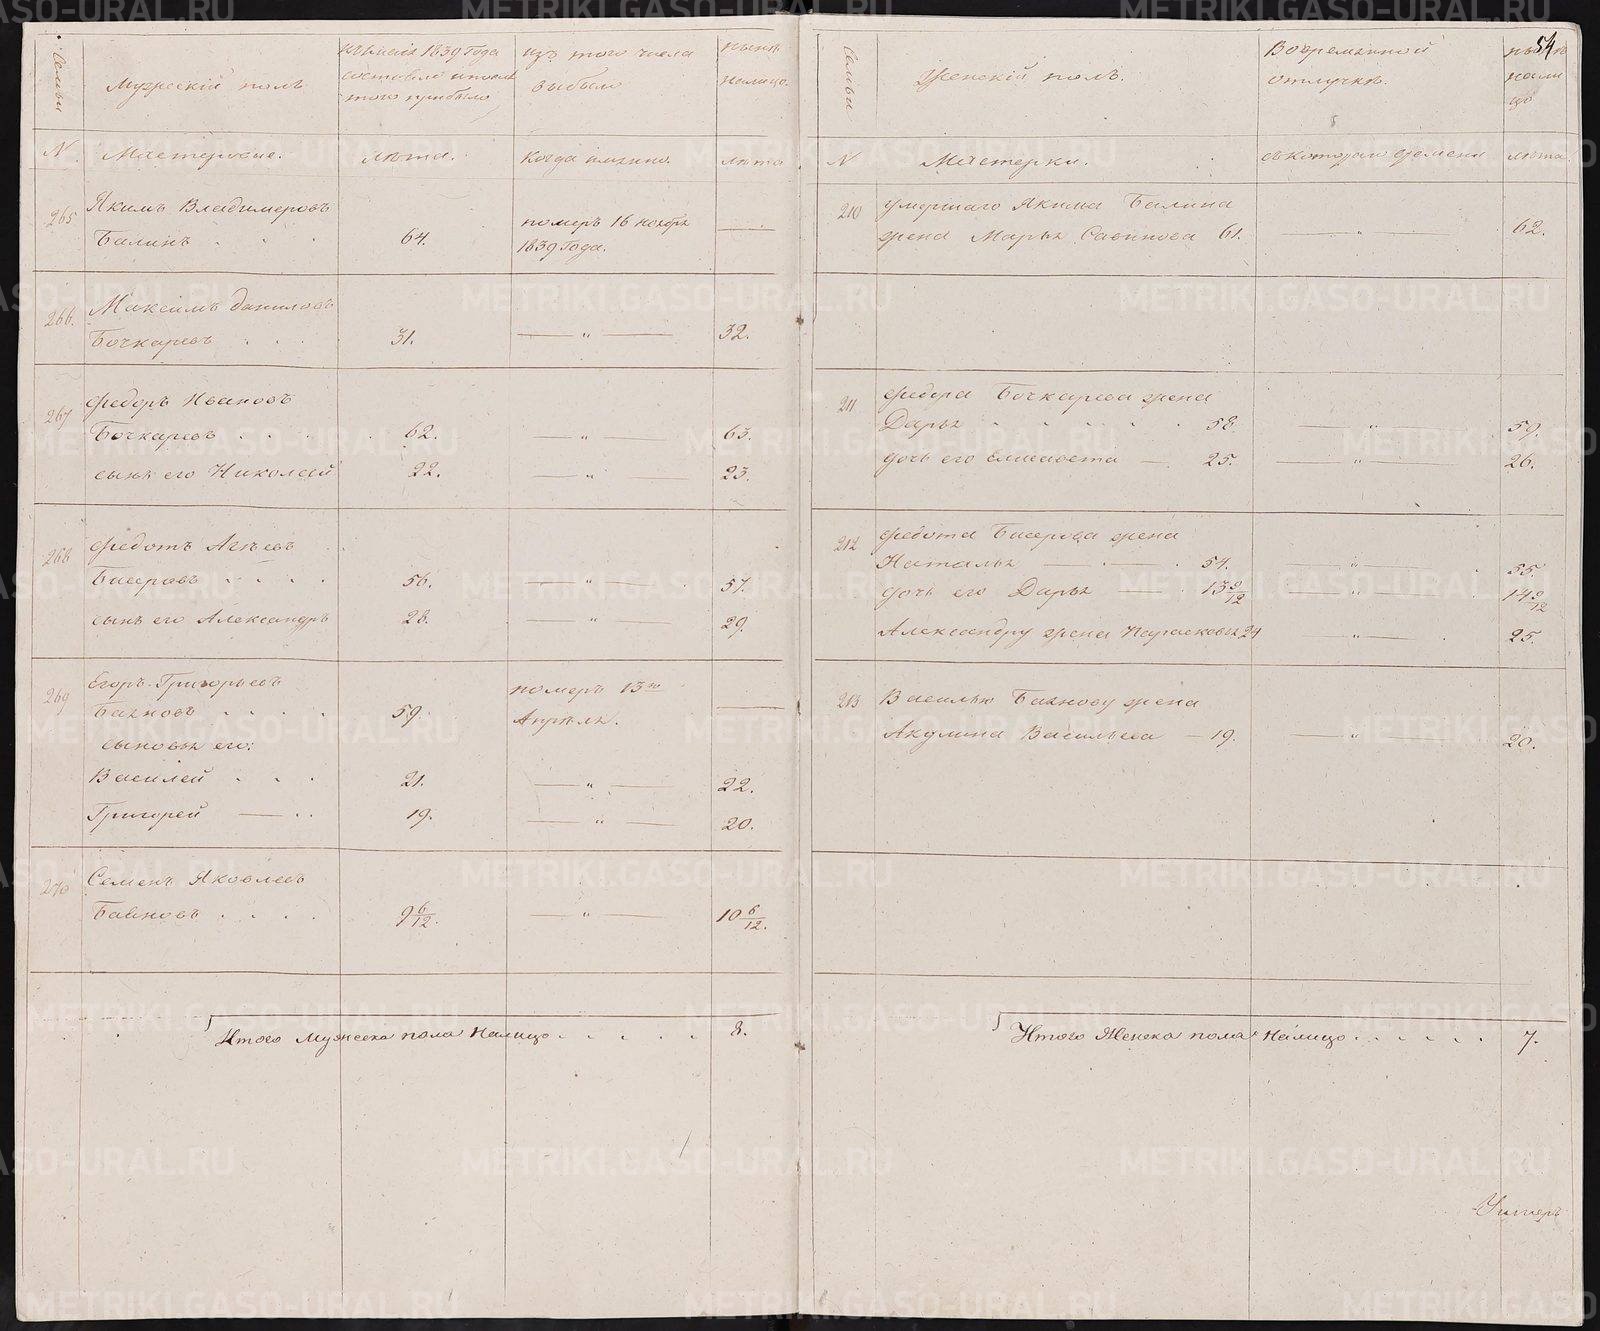 Семьи
Мужескій полъ
1839 года
изъ того числа
выбыло
нынѣ
налицо.
N
Мастеровые.
Лѣта.
Когда имянно.
лѣта
265
Якимъ Владимеровъ
Балинъ
64.
померъ 16 ноября
1839 года.
266.
Максимъ Даниловъ
Бочкаревъ
31.
32.
267
Федоръ Ивановъ
Бочкаревъ
62.
63.
сынъ его Николай
22.
23.
268
Федотъ Агѣевъ
Бисеровъ
56.
57.
сынъ его Александръ
28.
29.
269
Егоръ Григорьевъ
Баяновъ
59.
померъ 13го
Апрѣля.
сыновья его:
Василей
21.
22.
Григорей
19.
20.
270
Семенъ Яковлевъ
Баяновъ
9 6/12.
10 6/12.
Итого Мужеска пола Налицо
8.
54
Семьи
Женскій полъ.
Вовременной
отлучке.
нынѣ
нали
цо
N
Мастерки.
съкотораго времени
лѣта.
210
умершаго Якима Балина
жена Марья Савинова 61.
62.
211
Федора Бочкарева жена
Дарья 58.
59.
дочь его Елисавета 25.
26.
212
Федота Бисерова жена
Наталья 54.
55.
дочь его Дарья 13 9/12
14 9/12
Александру жена Парасковья 24
25.
213
Василью Баянову жена
Акулина Васильева 19.
20.
Итого Женска пола Налицо
7.